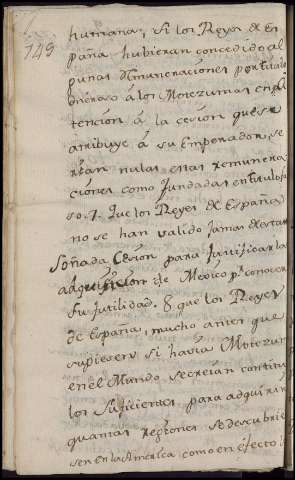 149
humana, si los Reyes de Es
paña hubieran concedido al
gunas remuneraciones por titulo
oneroso á los Motezumas en al
tencion á la cesion que se
atribuye á su Emperador, se
rian nulas estas remunera
ciones como fundadas en titulo fal
so. 7. Que los Reyes de España
no se han valido jamas de esta
soñada Cesion para justificar la
adquisicion de Mexico pr. conocer
su futilidad. 8 que los Reyes
de España, mucho antes que
supiesen si havia Motezum
en el Mundo se creian con titu
los suficientes para adquirir
quantas regiones se descubrie
sen en la America como en efecto l